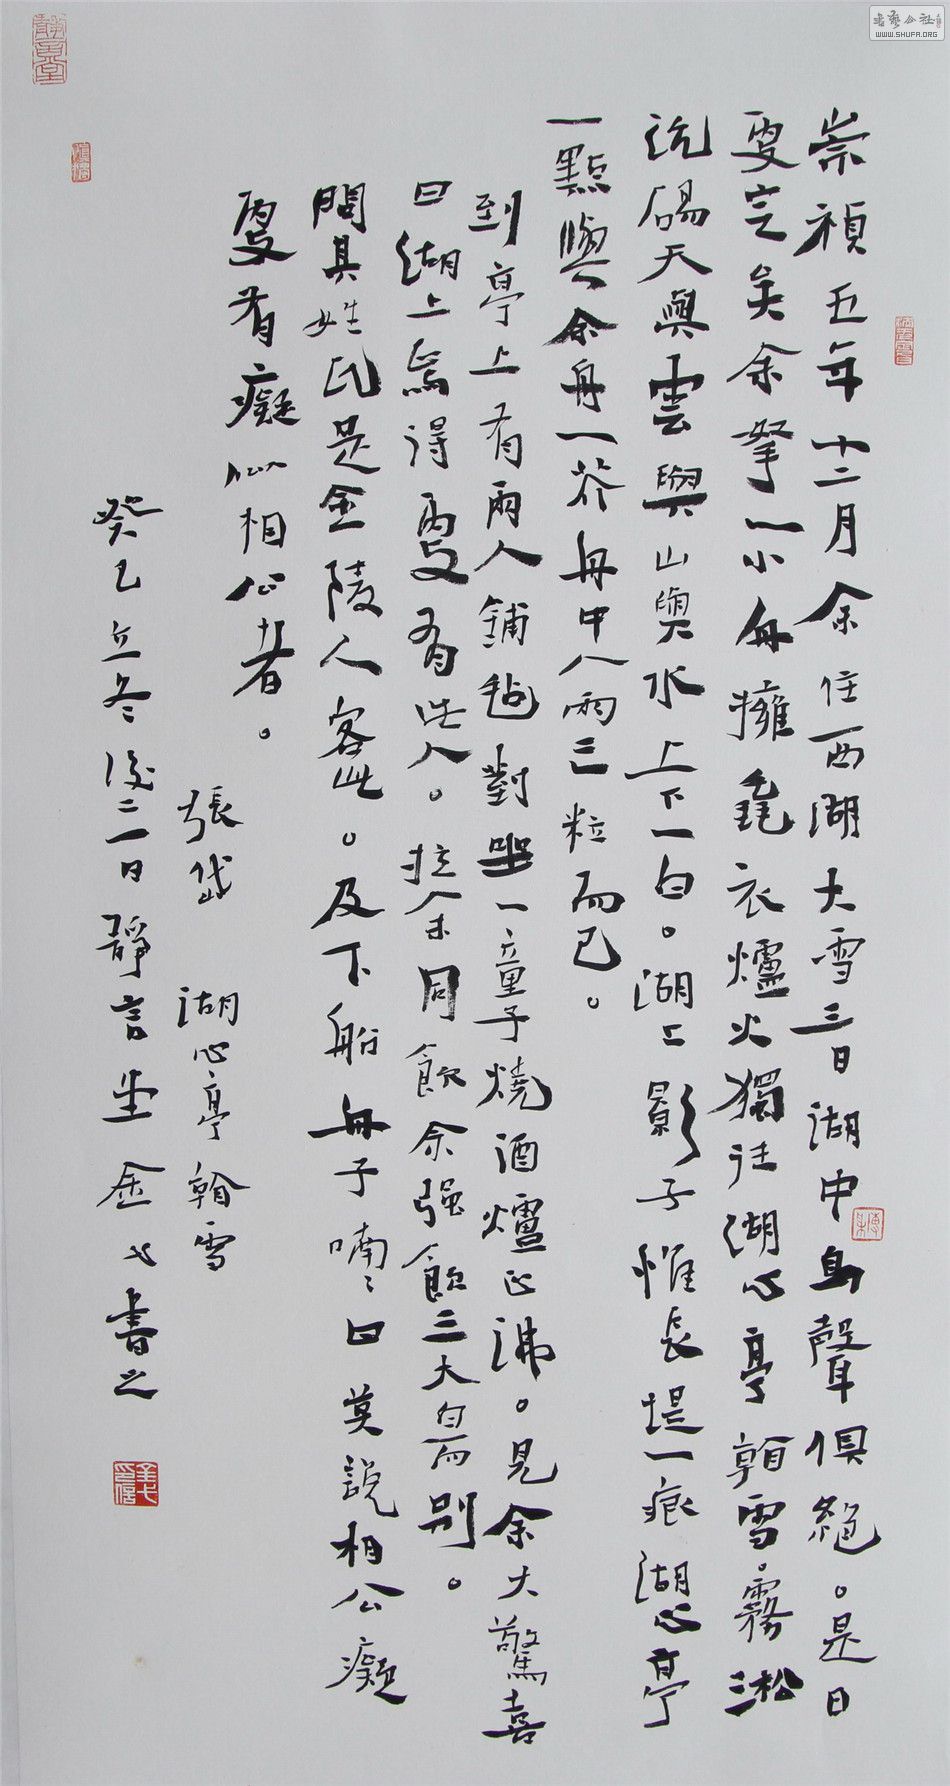 崇禎五年十二月余住西湖大雪三日湖中鳥聲俱絕。是日
更定矣余拏一小舟擁毳衣爐火獨往湖心亭看雪。霧淞
沆碭天與雲與山與水上下一白。湖上影子惟長堤一痕湖心亭
一點與余舟一芥舟中人兩三粒而已。
到亭上有兩人鋪氈對坐一童子燒酒爐正沸。見余大驚喜
曰湖上焉得更有此人。拉余同飲余強飲三大白而別。
問其姓氏是金陵人客此。及下船舟子喃〻曰莫說相公癡
更有癡似相公者。
張岱 湖心亭看雪
癸巳立冬後二一日靜言堂金七書之
書藝公社
WWW.SHUFA.ORG